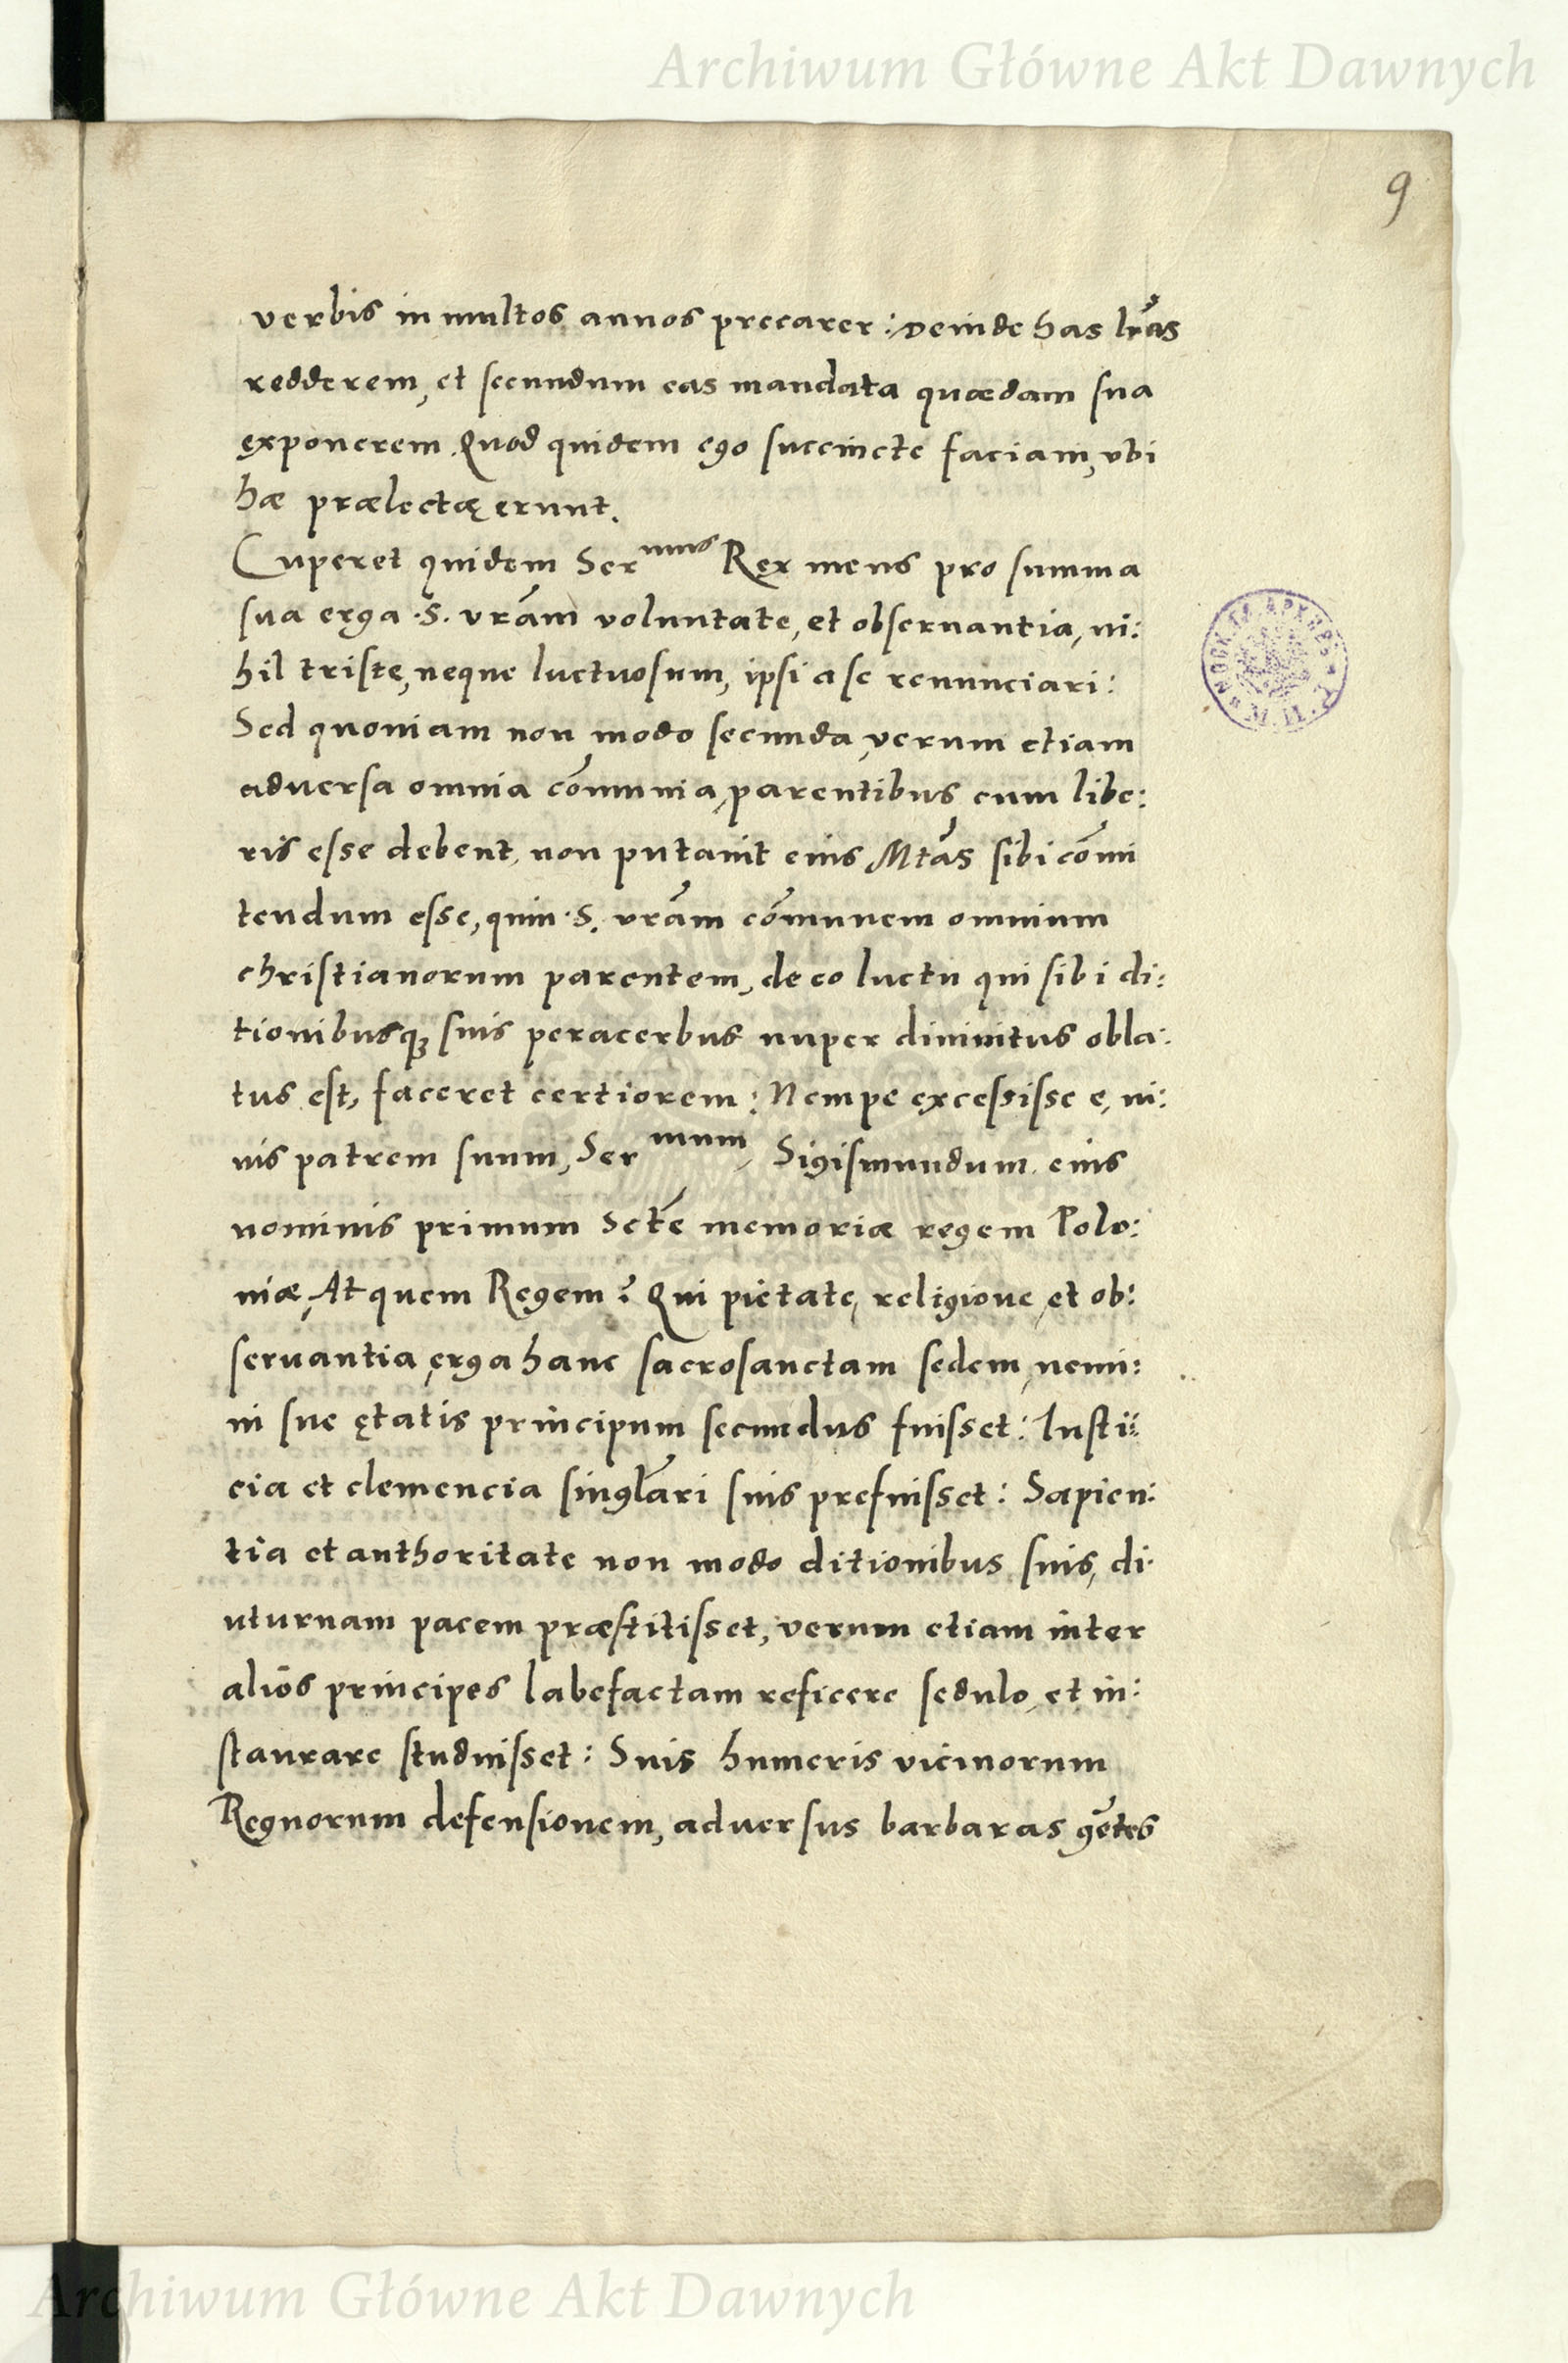 Archiwum Główne Akt Dawnych
9
verbis in multos annos precarer: deinde has lr̃as
redderem, et secundum eas mandata quædam sua
exponerem. Quod quidem ego succincte faciam, vbi
hæ prælectę erunt.
Cuperet quidem Ser^mus Rex meus pro summa
sua erga .S. vr̃am voluntate, et obseruantia, ni:
hil triste, neque luctuosum, ipsi a se renunciari:
Sed quoniam non modo secunda, verum etiam
aduersa omnia cõmunia, parentibus cum libe:
ris esse debent, non putauit eius Mtãs sibi cõmi
tendum esse, quin .S. vr̃am cõmunem omnium
christianorum parentem, de eo luctu qui sibi di:
tionibusq; suis peracerbus nuper diuinitus obla:
tus est, faceret certiorem: Nempe excessisse e, ui:
uis patrem suum, Ser^mum, Sigismundum eius
nominis primum Sctẽ memoriæ regem Polo:
niæ, At quem Regem? Qui pietate, religione, et ob:
seruantia, erga hanc sacrosanctam sedem, nemi:
ni sue ętatis principum secundus fuisset: Iusti:
cia et clemencia singl̃ari suis prefuisset: Sapien:
tia et authoritate non modo ditionibus suis, di:
uturnam pacem præstitisset, verum etiam inter
alios principes labefactam reficere sedulo, et in:
staurare studuisset: Suis humeris vicinorum
Regnorum defensionem, aduersus barbaras gẽtes
Archiwum Główne Akt Dawnych